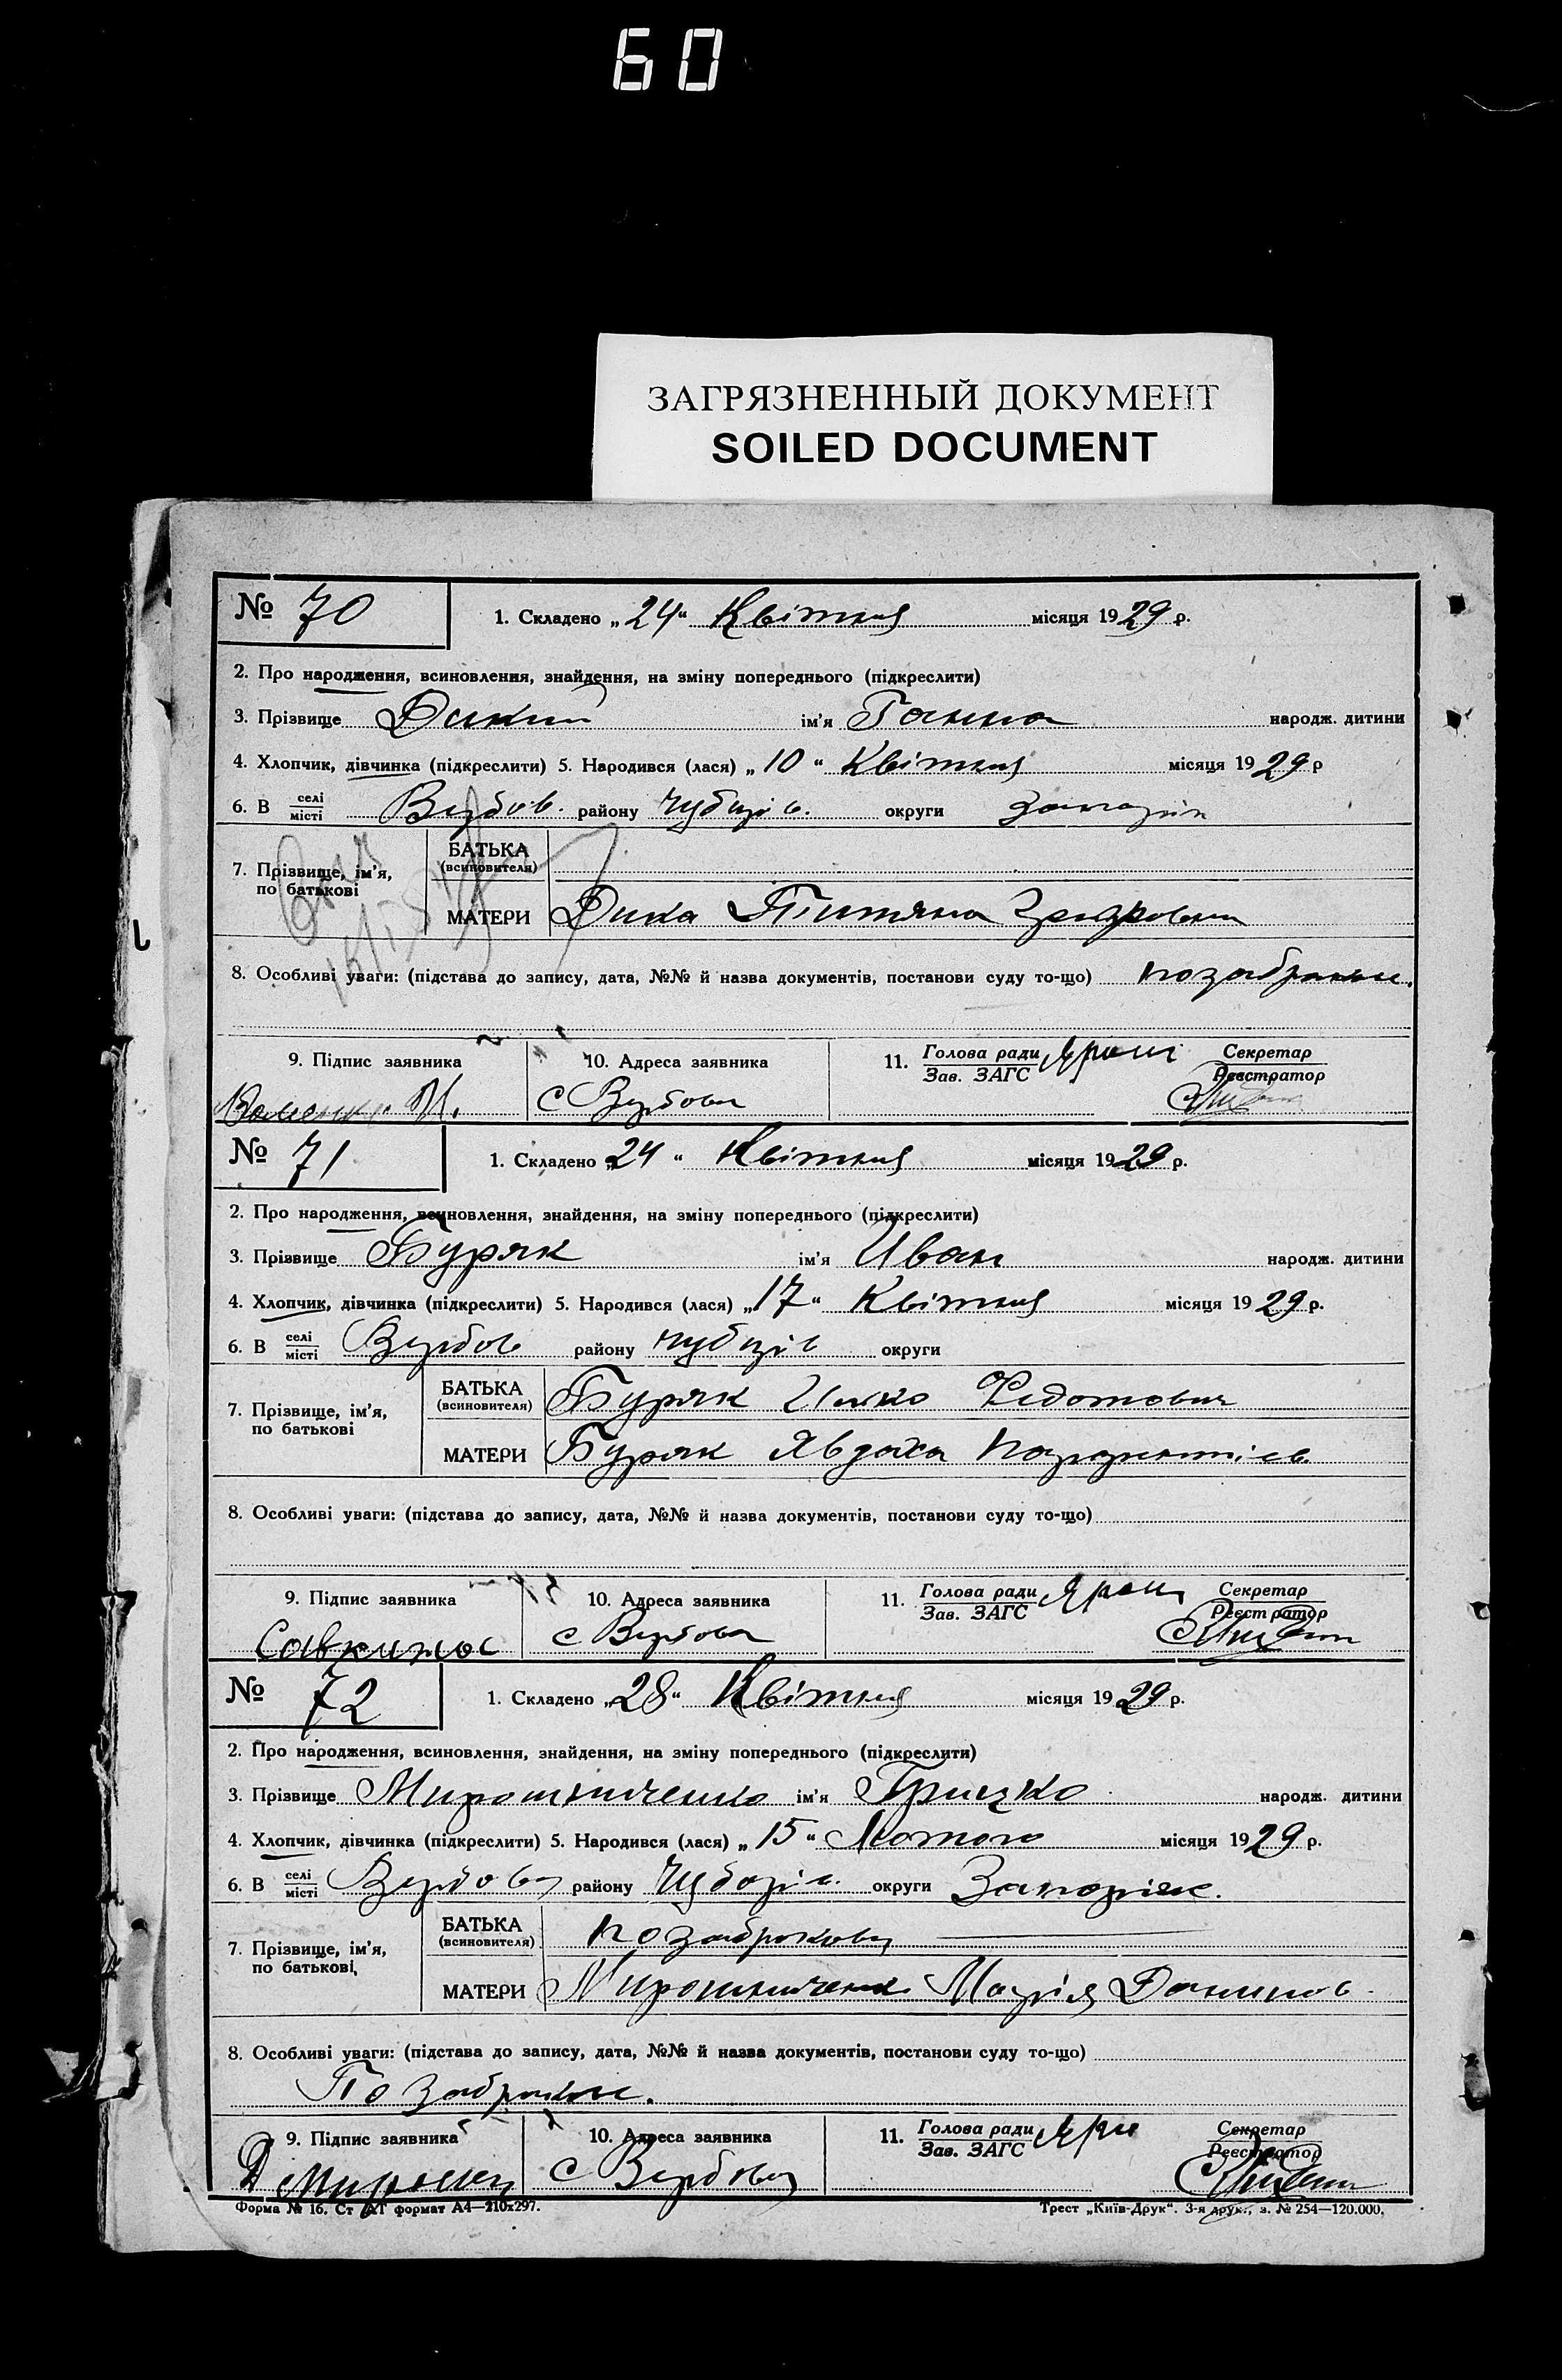 60
ЗАГРЯЗНЕННЫЙ ДОКУМЕНТ
SOILED DOCUMENT
№ 70
1. Складено „24“ Квітня місяця 1929 р.
2. Про народження, всиновлення, знайдення, на зміну попереднього (підкреслити)
3. Прізвище Дикий ім'я Ганна народж. дитини
4. Хлопчик, дівчинка (підкреслити) 5. Народився (лася) „10“ Квітня місяця 1929 р
6. В селі місті Вербов. району Чубарів. округи
7. Прізвище, ім'я, по батькові
БАТЬКА (всиновителя)
МАТЕРИ Дика Титяна
8. Особліві уваги: (підстава до запису, дата, №№ й назва документів, постанови суду то-що) позабрачн.
9. Підпис заявника
10. Адреса заявника
11. Голова ради Зав. ЗАГС
Секретар Реєстратор
с Вербова
№ 71
1. Складено „24“ Квітня місяця 1929 р.
2. Про народження, всиновлення, знайдення, на зміну попереднього (підкреслити)
3. Прізвище Буряк ім'я Иван народж. дитини
4. Хлопчик, дівчинка (підкреслити) 5. Народився (лася) „17“ Квітня місяця 1929 р.
6. В селі місті Вербов району Чубарів округи
7. Прізвище, ім'я, по батькові
БАТЬКА (всиновителя) Буряк Илько Федотович
МАТЕРИ Буряк Явдоха
8. Особливі уваги: (підстава до запису, дата, №№ й назва документів, постанови суду то-що)
9. Підпис заявника
10. Адреса заявника
11. Голова ради Зав. ЗАГС
Секретар Реєстратор
с Вербова
№ 72
1. Складено „28“ Квітня місяця 1929 р.
2. Про народження, всиновлення, знайдення, на зміну попереднього (підкреслити)
3. Прізвище Мирошниченко ім'я Грицко народж. дитини
4. Хлопчик, дівчинка (підкреслити) 5. Народився (лася) „15“ Лютого місяця 1929 р.
6. В селі місті Вербова району Чубарів. округи Запоріж.
7. Прізвище, ім'я, по батькові
БАТЬКА (всиновителя)
МАТЕРИ Мирошниченк Марія Данилов
8. Особливі уваги: (підстава до запису, дата, №№ й назва документів, постанови суду то-що)
9. Підпис заявника
10. Адреса заявника
11. Голова ради Зав. ЗАГС
Секретар Реєстратор
с Вербова
Форма № 16. Ст АТ формат А4—210х297.
Трест „Київ-Друк“. 3-я друк., з. № 254—120.000.